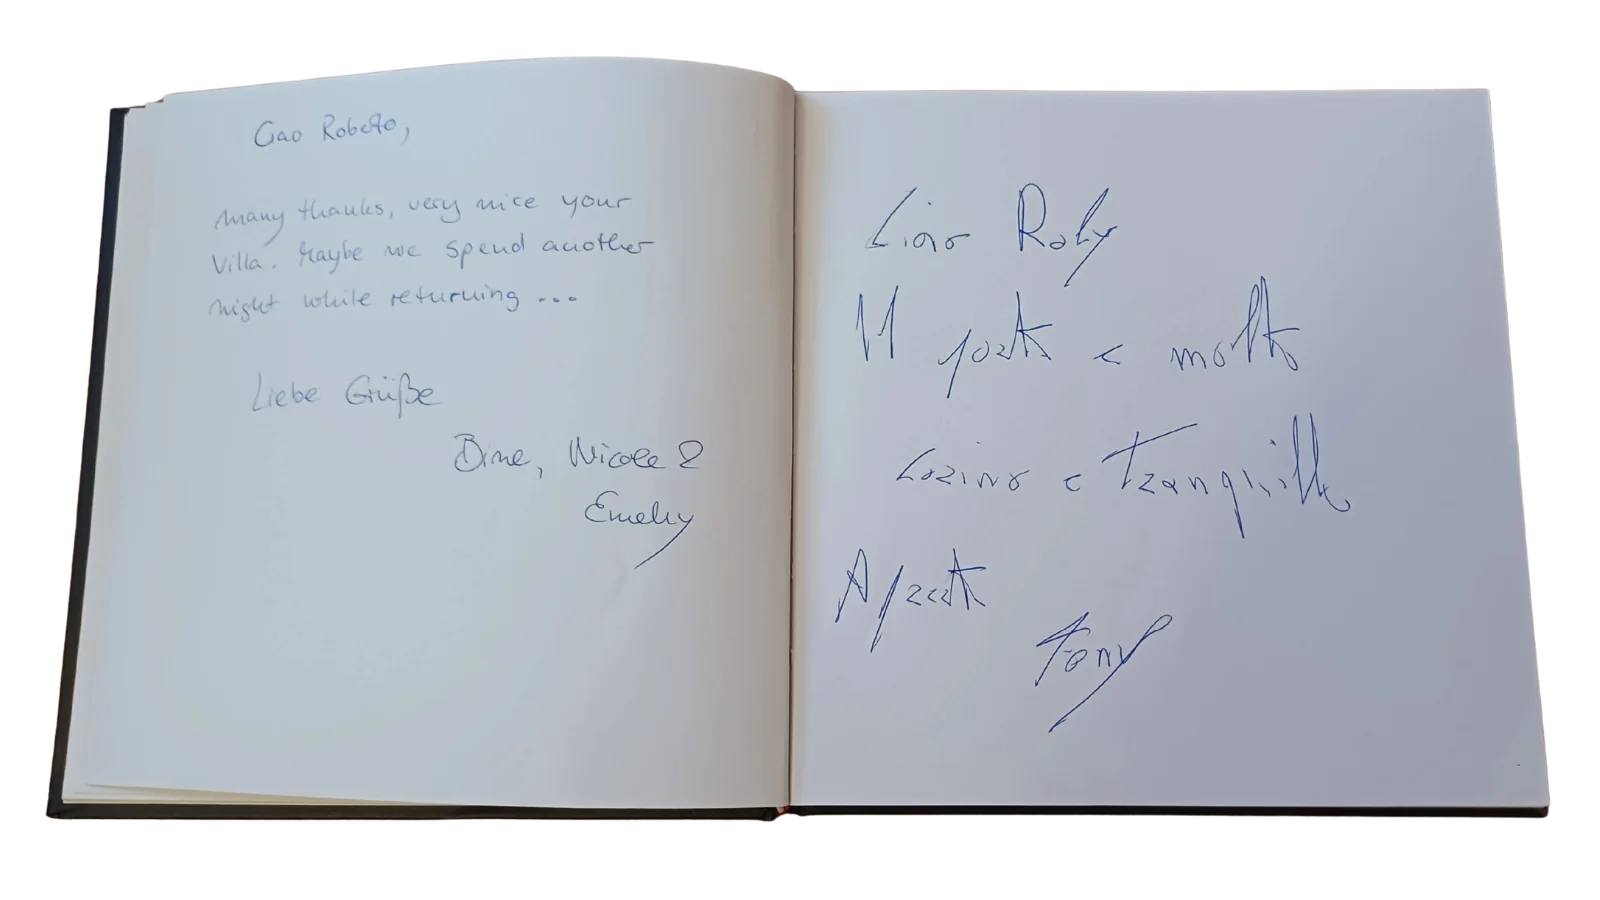 Ciao Roberto,
many thanks, very nice your
Villa. Maybe we spend another
night while returning ...
Liebe Grüße
Bine, Nicole &
Emely
Ciao Roby
Il posto e molto
carino e tranquillo
A presto
Tony